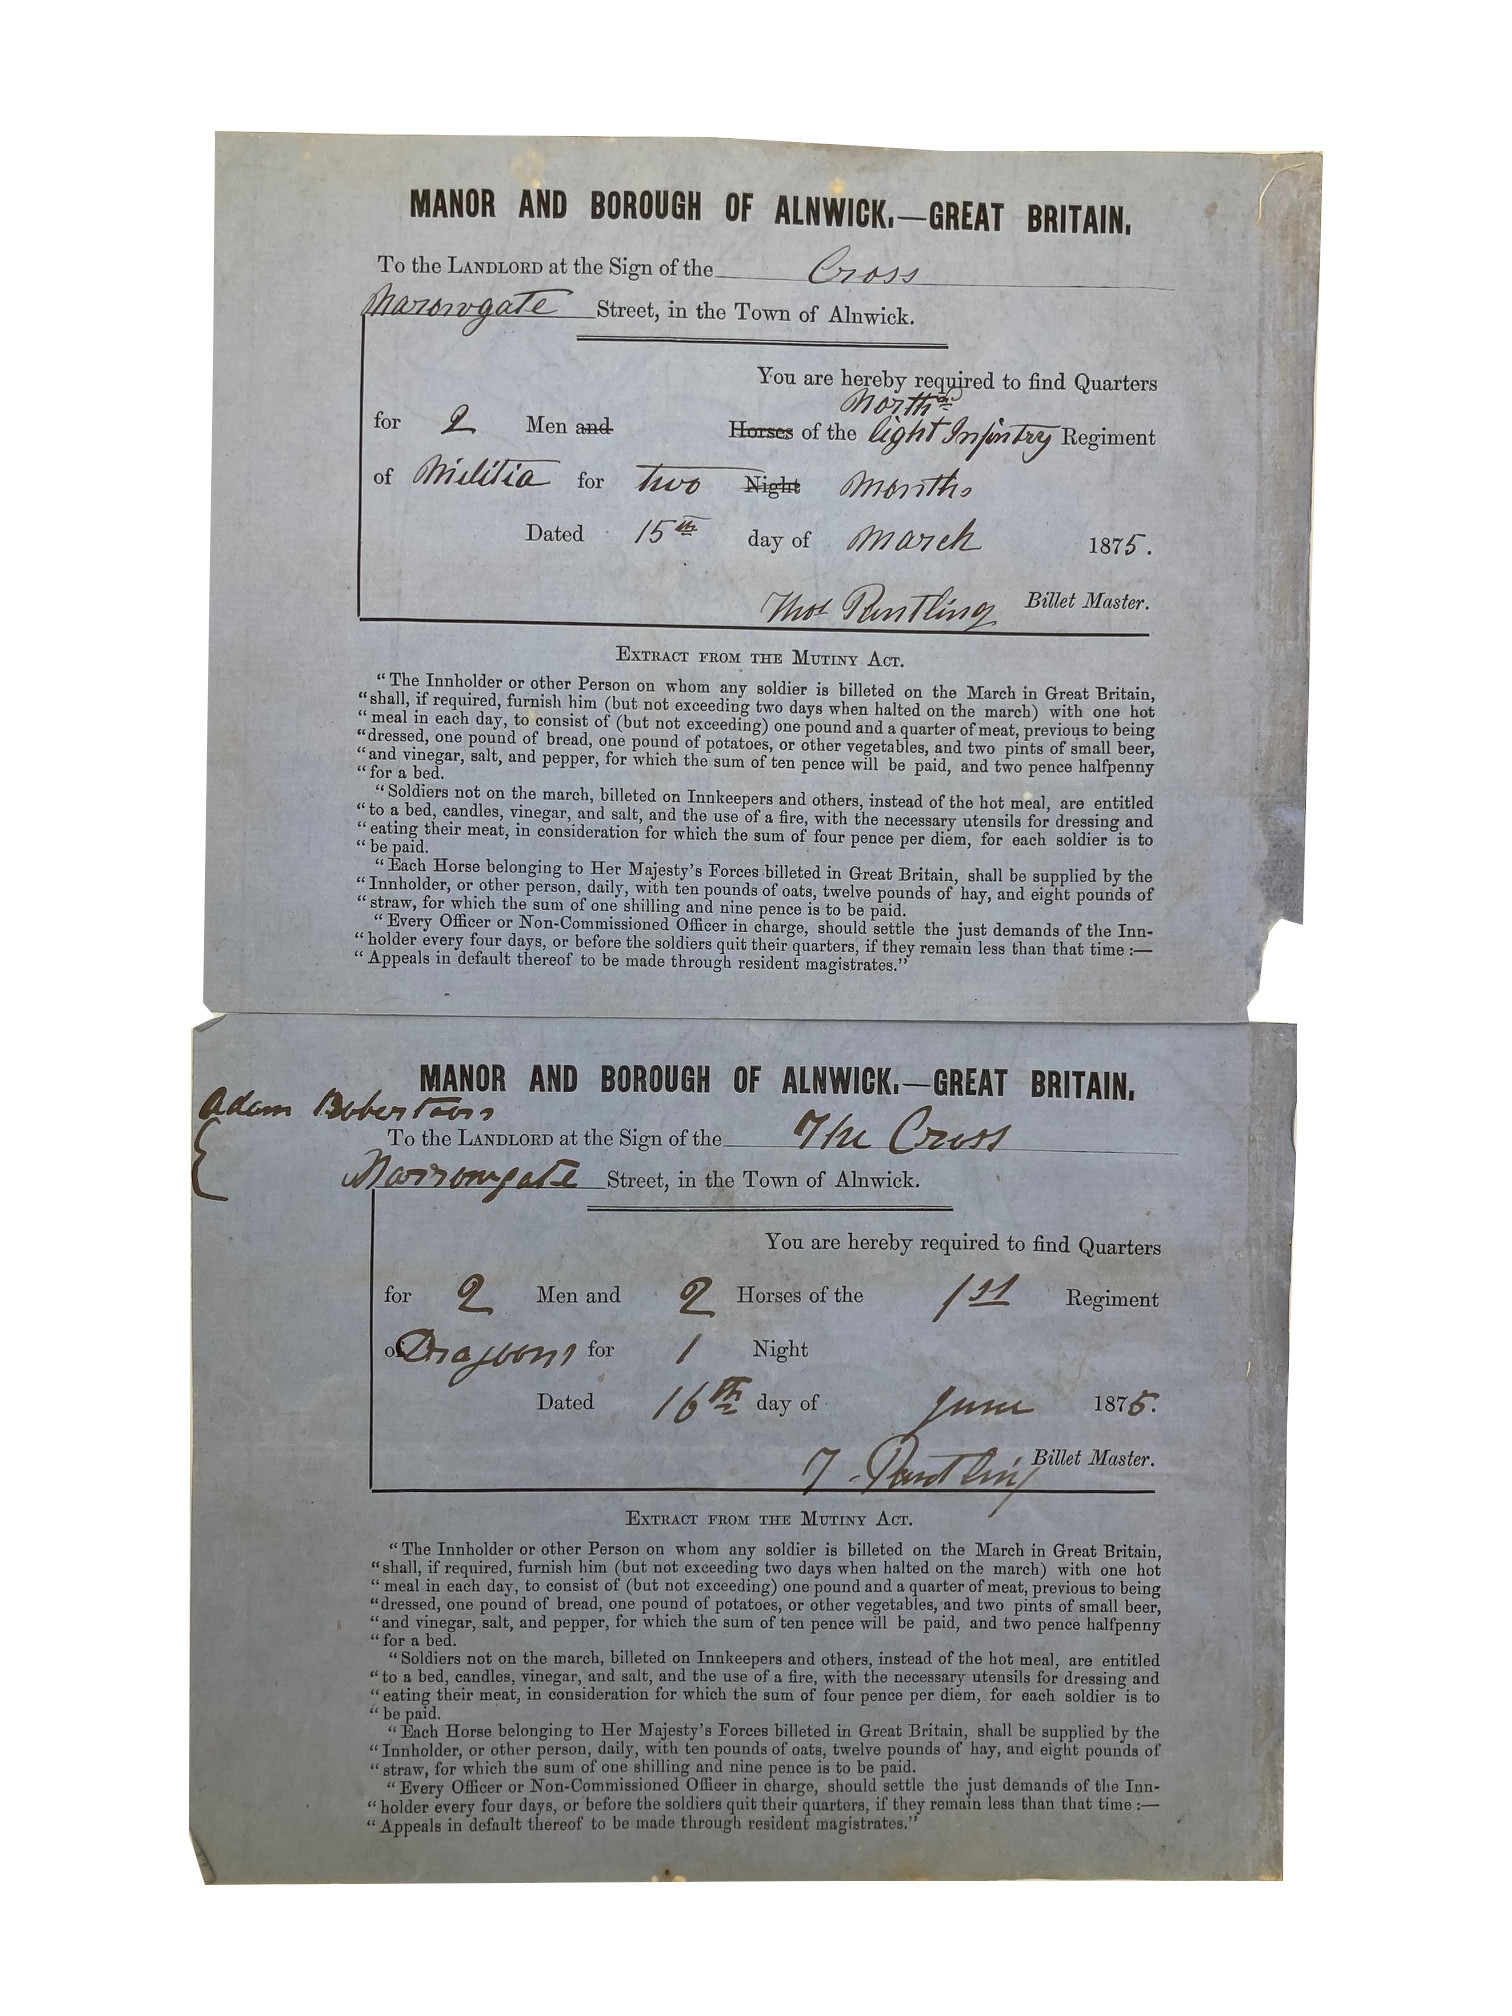 MANOR AND BOROUGH OF ALNWICK.—GREAT BRITAIN.
To the LANDLORD at the Sign of the Cross
Narowgate Street, in the Town of Alnwick.
You are hereby required to find Quarters
North'd
for 2 Men and Horses of the light Infintry Regiment
of Militia for two Night Months
Dated 15th day of March 1875.
Thos Rentling Billet Master.
EXTRACT FROM THE MUTINY ACT.
"The Innholder or other Person on whom any soldier is billeted on the March in Great Britain,
"shall, if required, furnish him (but not exceeding two days when halted on the march) with one hot
"meal in each day, to consist of (but not exceeding) one pound and a quarter of meat, previous to being
"dressed, one pound of bread, one pound of potatoes, or other vegetables, and two pints of small beer,
"and vinegar, salt, and pepper, for which the sum of ten pence will be paid, and two pence halfpenny
"for a bed.
"Soldiers not on the march, billeted on Innkeepers and others, instead of the hot meal, are entitled
"to a bed, candles, vinegar, and salt, and the use of a fire, with the necessary utensils for dressing and
"eating their meat, in consideration for which the sum of four pence per diem, for each soldier is to
"be paid.
"Each Horse belonging to Her Majesty's Forces billeted in Great Britain, shall be supplied by the
"Innholder, or other person, daily, with ten pounds of oats, twelve pounds of hay, and eight pounds of
"straw, for which the sum of one shilling and nine pence is to be paid.
"Every Officer or Non-Commissioned Officer in charge, should settle the just demands of the Inn-
"holder every four days, or before the soldiers quit their quarters, if they remain less than that time :—
"Appeals in default thereof to be made through resident magistrates."
MANOR AND BOROUGH OF ALNWICK.—GREAT BRITAIN.
Adam
To the LANDLORD at the Sign of the The Cross
Narrowgate Street, in the Town of Alnwick.
You are hereby required to find Quarters
for 2 Men and 2 Horses of the 1st Regiment
of Dragoons for 1 Night
Dated 16th day of June 1875.
T. Billet Master.
EXTRACT FROM THE MUTINY ACT.
"The Innholder or other Person on whom any soldier is billeted on the March in Great Britain,
"shall, if required, furnish him (but not exceeding two days when halted on the march) with one hot
"meal in each day, to consist of (but not exceeding) one pound and a quarter of meat, previous to being
"dressed, one pound of bread, one pound of potatoes, or other vegetables, and two pints of small beer,
"and vinegar, salt, and pepper, for which the sum of ten pence will be paid, and two pence halfpenny
"for a bed.
"Soldiers not on the march, billeted on Innkeepers and others, instead of the hot meal, are entitled
"to a bed, candles, vinegar, and salt, and the use of a fire, with the necessary utensils for dressing and
"eating their meat, in consideration for which the sum of four pence per diem, for each soldier is to
"be paid.
"Each Horse belonging to Her Majesty's Forces billeted in Great Britain, shall be supplied by the
"Innholder, or other person, daily, with ten pounds of oats, twelve pounds of hay, and eight pounds of
"straw, for which the sum of one shilling and nine pence is to be paid.
"Every Officer or Non-Commissioned Officer in charge, should settle the just demands of the Inn-
"holder every four days, or before the soldiers quit their quarters, if they remain less than that time :—
"Appeals in default thereof to be made through resident magistrates."